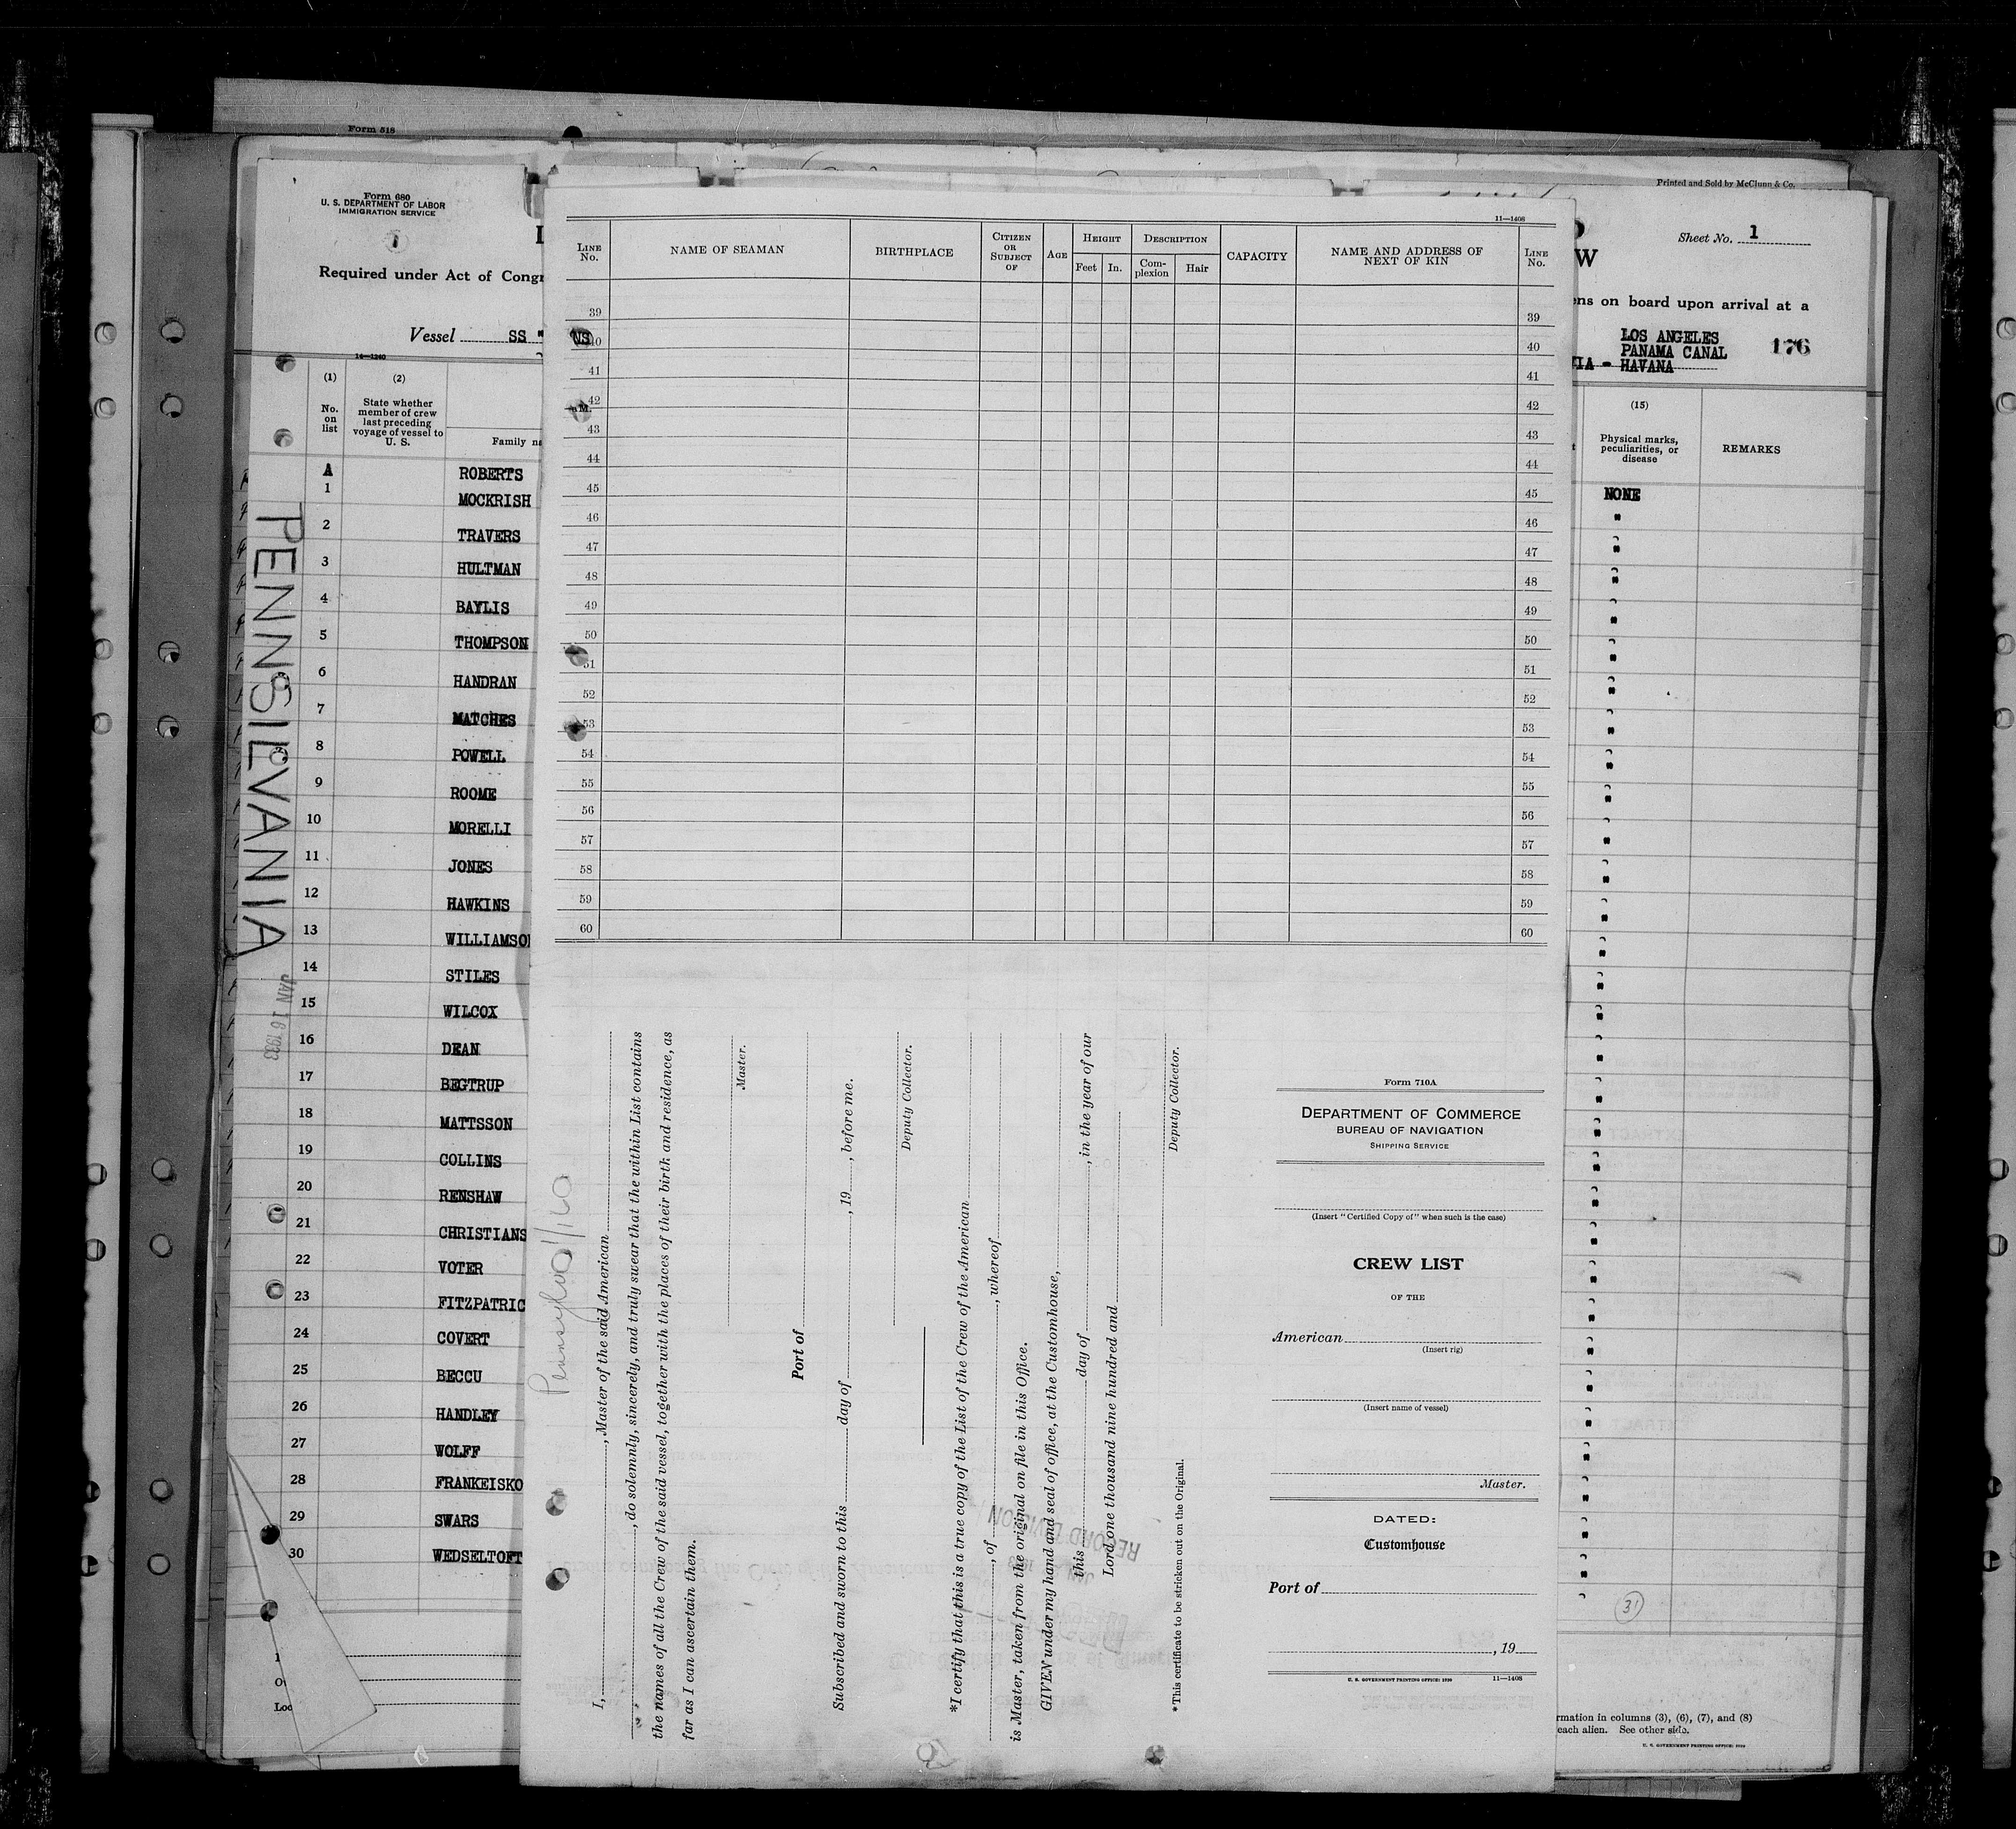 Form 516
Printed and Sold by McClunn & Co.
Form 680
U. S. DEPARTMENT OF LABOR
IMMIGRATION SERVICE
1
Required under Act of Congr
Vessel SS "
14—1240
(1)
No.
on
list
(2)
State whether
member of crew
last preceding
voyage of vessel to
U. S.
Family na
A ROBERTS
1 MOCKRISH
2 TRAVERS
3 HULTMAN
4 BAYLIS
5 THOMPSON
6 HANDRAN
7 MATCHES
8 POWELL
9 ROOME
10 MORELLI
11 JONES
12 HAWKINS
13 WILLIAMSO
14 STILES
15 WILCOX
16 DEAN
17 BEGTRUP
18 MATTSSON
19 COLLINS
20 RENSHAW
21 CHRISTIANS
22 VOTER
23 FITZPATRIC
24 COVERT
25 BECCU
26 HANDLEY
27 WOLFF
28 FRANKEISKO
29 SWARS
30 WEDSELTOFT
PENNSILVANIA
JAN 16 1933
11—1408
LINE
No.
NAME OF SEAMAN
BIRTHPLACE
CITIZEN
OR
SUBJECT
OF
AGE
HEIGHT
Feet In.
DESCRIPTION
Com-
plexion
Hair
CAPACITY
NAME AND ADDRESS OF
NEXT OF KIN
LINE
No.
39 39
40 40
41 41
42 42
43 43
44 44
45 45
46 46
47 47
48 48
49 49
50 50
51 51
52 52
53 53
54 54
55 55
56 56
57 57
58 58
59 59
60 60
I, , Master of the said American
, do solemnly, sincerely, and truly swear that the within List contains
the names of all the Crew of the said vessel, together with the places of their birth and residence, as
far as I can ascertain them.
Master.
Port of
Subscribed and sworn to this day of , 19 , before me.
Deputy Collector.
*I certify that this is a true copy of the List of the Crew of the American
, of , whereof
is Master, taken from the original on file in this Office.
GIVEN under my hand and seal of office, at the Customhouse,
this day of , in the year of our
Lord one thousand nine hundred and
Deputy Collector.
*This certificate to be stricken out on the Original.
RECORD DIVISION
Form 710A
DEPARTMENT OF COMMERCE
BUREAU OF NAVIGATION
SHIPPING SERVICE
(Insert "Certified Copy of" when such is the case)
CREW LIST
OF THE
American
(Insert rig)
(Insert name of vessel)
Master.
DATED:
Customhouse
Port of
, 19
U. S. GOVERNMENT PRINTING OFFICE: 1930 11—1408
Sheet No. 1
W
ens on board upon arrival at a
LOS ANGELES
PANAMA CANAL 176
IA - HAVANA
(15)
Physical marks,
peculiarities, or
disease
REMARKS
NONE
31
rmation in columns (3), (6), (7), and (8)
each alien. See other side.